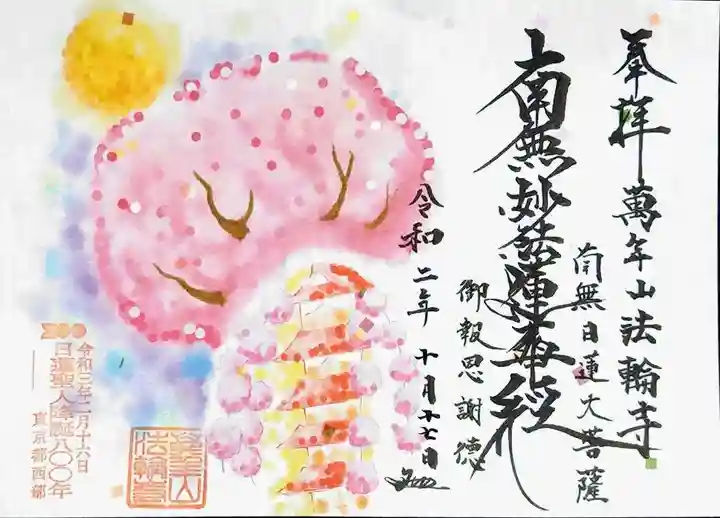 奉拝 萬年山法輪寺
南無日蓮大菩薩
南無妙法蓮華経
御報恩謝徳
令和二年 十月十七日
800
令和三年二月十六日
日蓮聖人降誕八〇〇年
東京都西部
萬年山
法輪寺